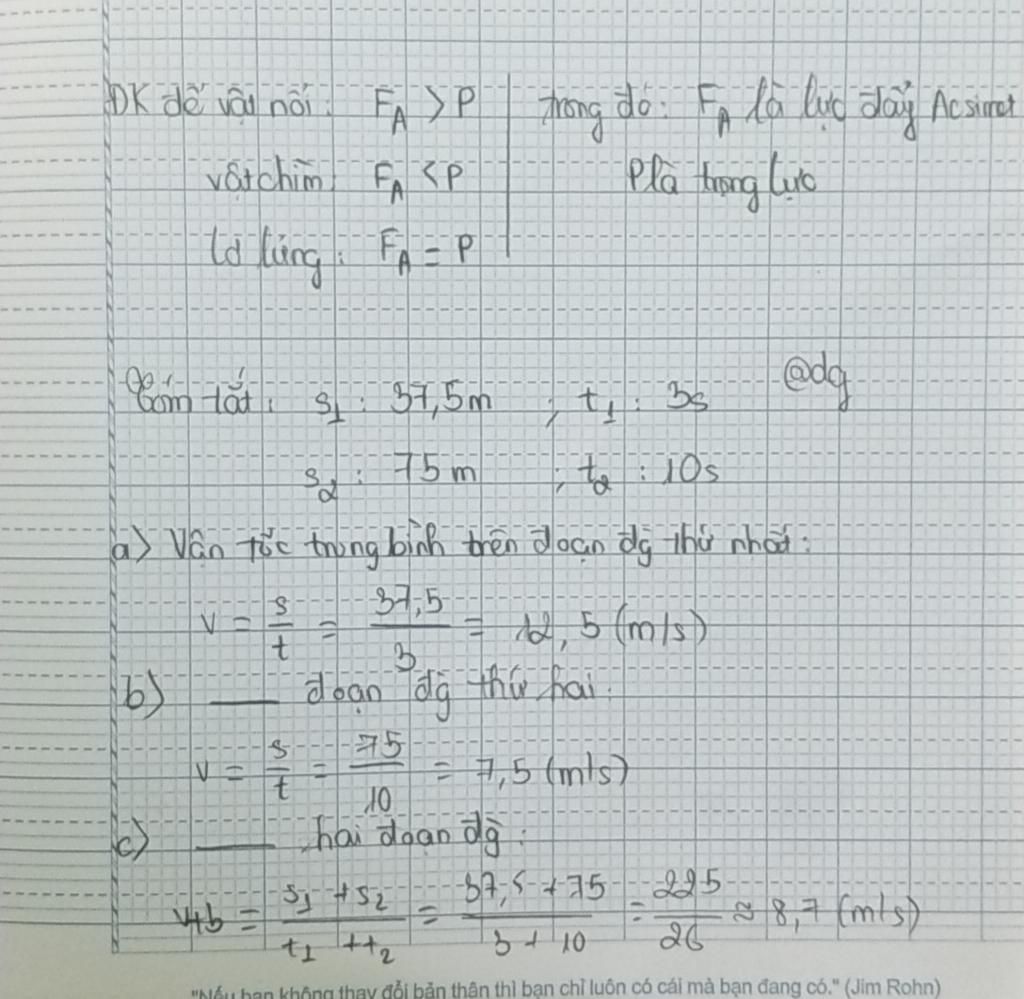 ĐK để vật nổi: F_A > P | trong đó: F_A là lực đẩy Acsimet
vật chìm: F_A < P | P là trọng lực
lơ lửng: F_A = P
@dg
Tóm tắt: s₁: 37,5m ; t₁: 3s
s₂: 75m ; t₂: 10s
a) Vận tốc trung bình trên đoạn đg thứ nhất:
v = s/t = 37,5/3 = 12,5 (m/s)
b) ___ đoạn đg thứ hai:
v = s/t = 75/10 = 7,5 (m/s)
c) ___ hai đoạn đg:
vtb = (s₁ + s₂)/(t₁ + t₂) = (37,5 + 75)/(3 + 10) = 225/26 ≈ 8,7 (m/s)
"Nếu bạn không thay đổi bản thân thì bạn chỉ luôn có cái mà bạn đang có." (Jim Rohn)